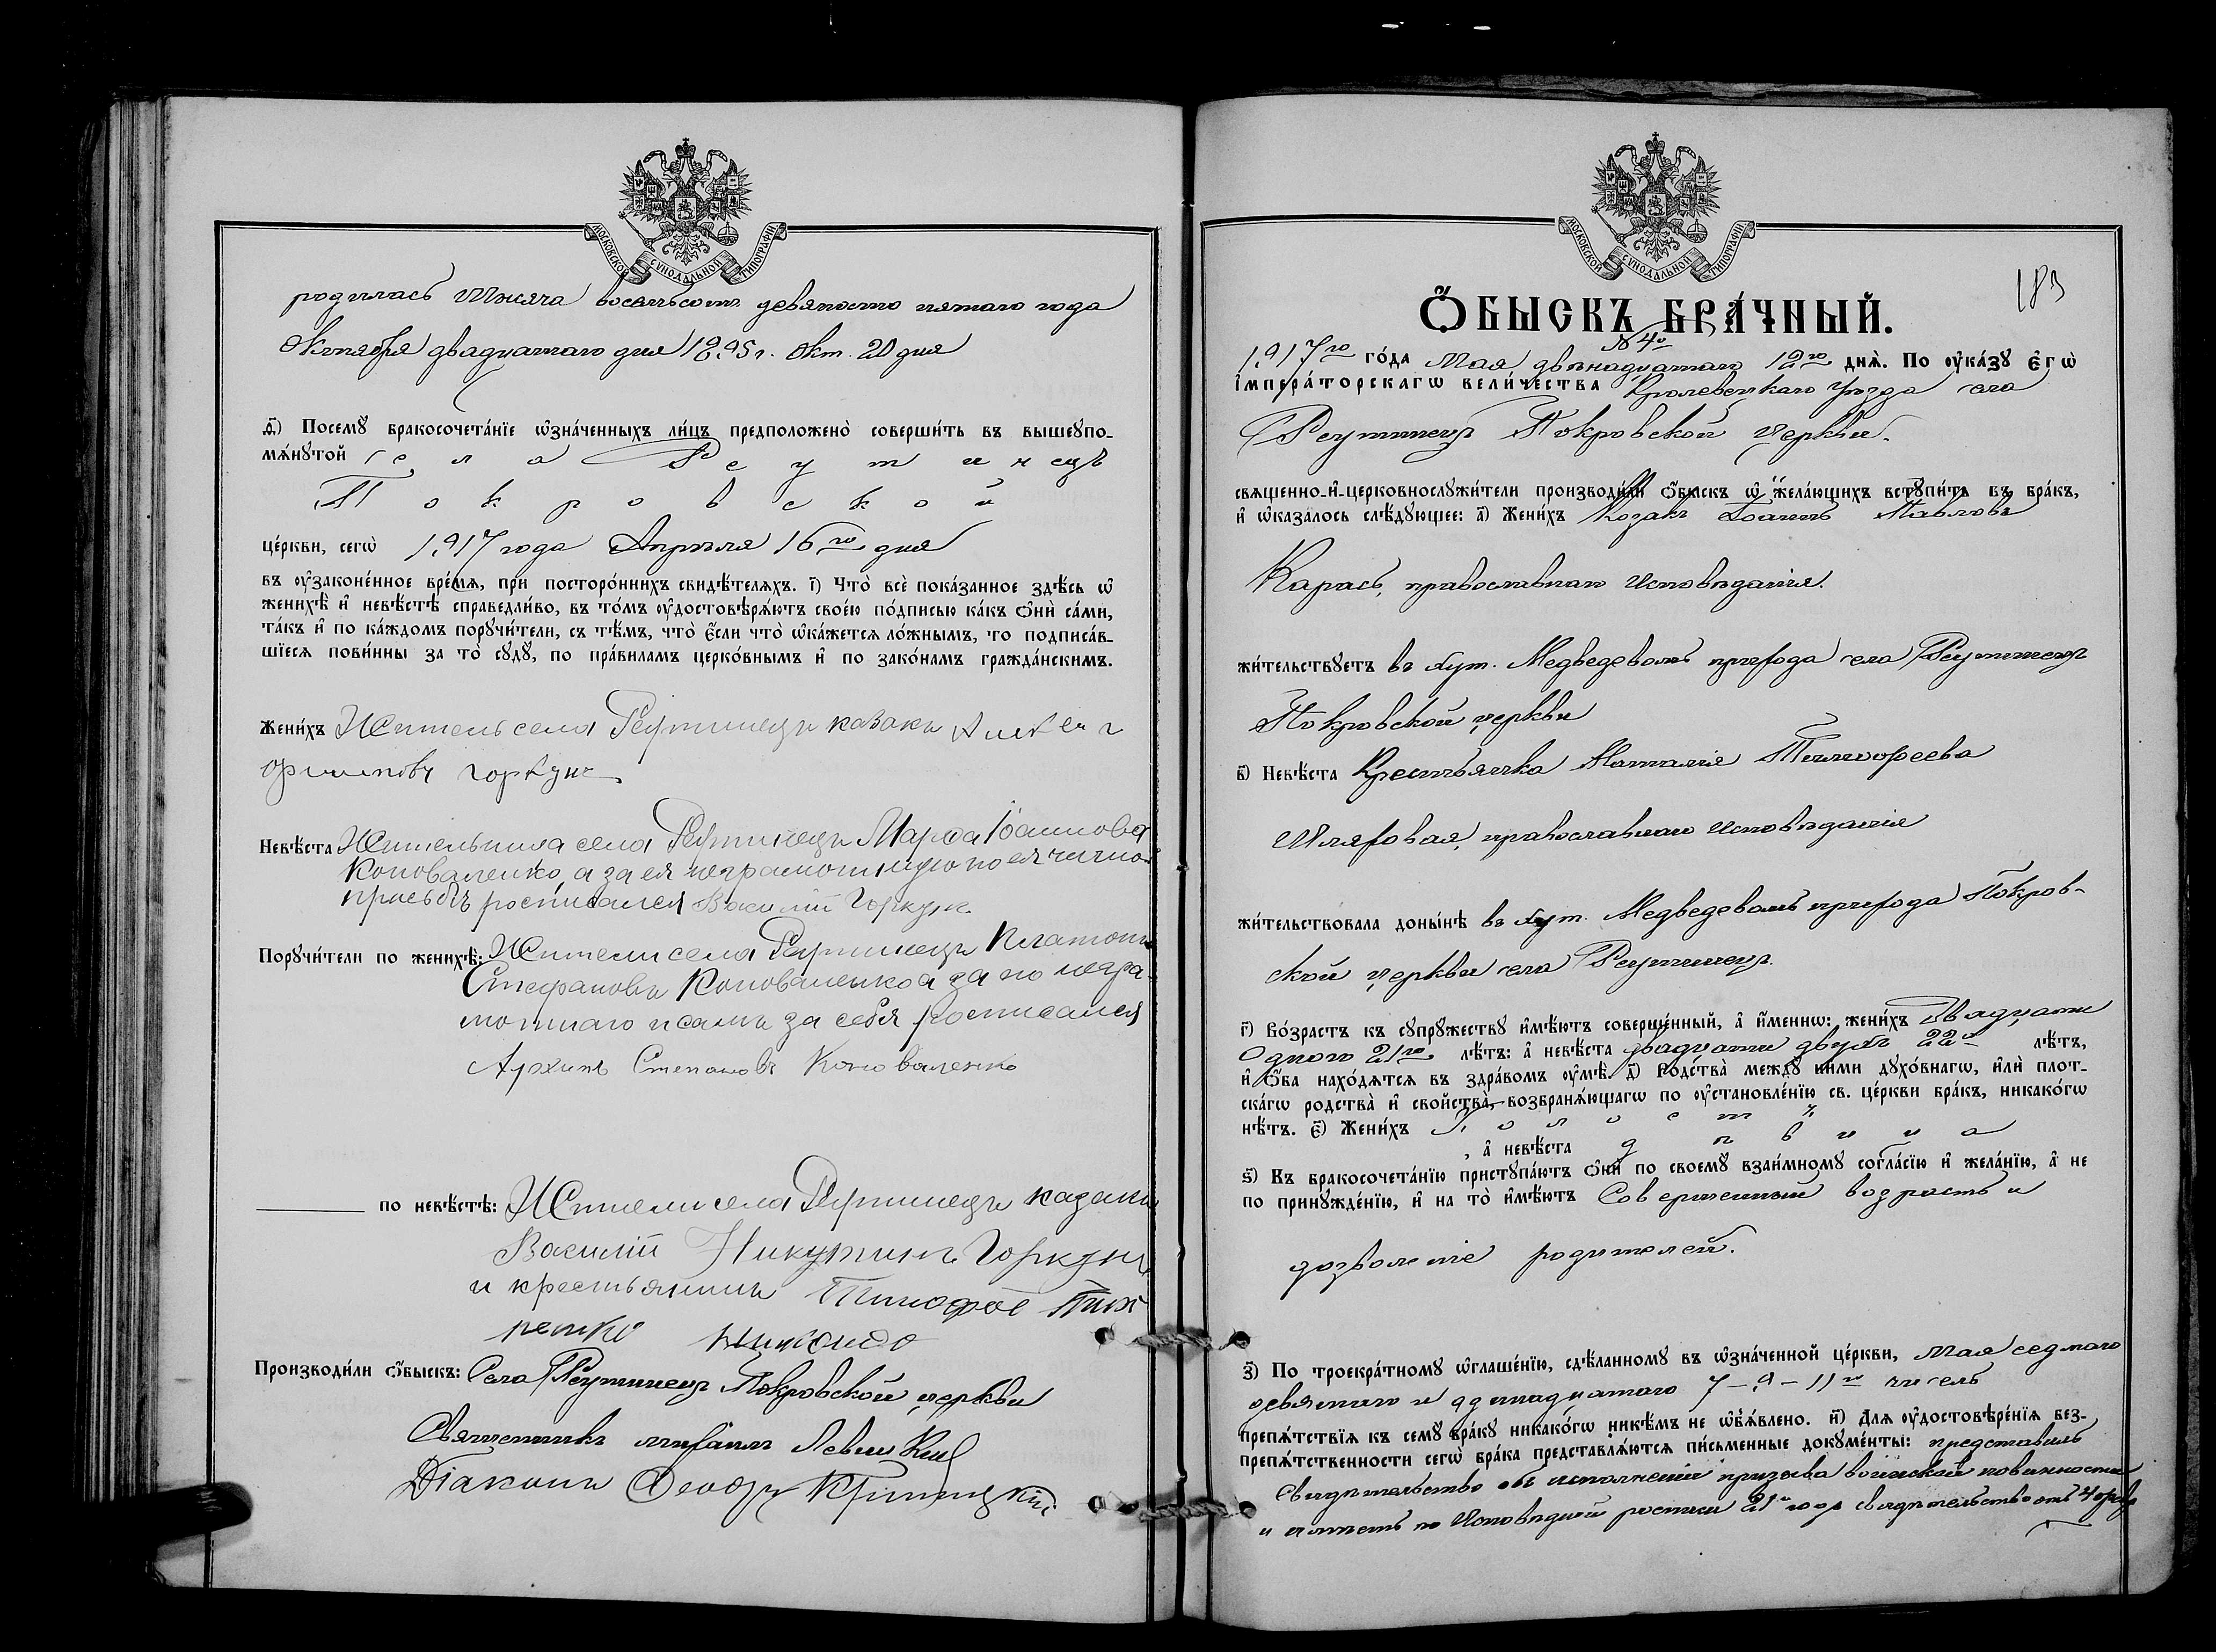 МОСКОВСКОЙ СѴНОДАЛЬНОЙ ТИПОГРАФІИ
родилась Тысяча восемьсотъ девяносто пятаго года
Октября двадцатаго дня 1895 г. Окт. 20 дня
Ѳ҃) Посемꙋ бракосочета́нїе ѡ҆зна́ченныхъ ли́цъ предположено̀ соверши́ть въ вышеꙋпо-
мѧ́нꙋтой села Реутинецъ
Покровской
це́ркви, сегѡ̀ 1917 года Апрѣля 16го дня
въ ᲂу҆законе́нное вре́мѧ, при посторо́ннихъ свидѣ́телѧхъ. І҃) Что̀ всѐ пока́занное здѣ́сь ѡ҆
женихѣ̀ и҆ невѣ́стѣ справедли́во, въ то́мъ ᲂу҆достовѣрѧ́ютъ свое́ю по́дписью ка́къ ѻ҆нѝ са́ми,
та́къ и҆ по ка́ждомъ порꙋчи́тели, съ тѣ́мъ, что̀ є҆́сли что̀ ѡ҆ка́жетсѧ ло́жнымъ, то подписа́в-
шїесѧ пови́нны за то̀ сꙋдꙋ̀, по пра́виламъ церко́внымъ и҆ по зако́намъ гражда́нскимъ.
Жени́хъ Житель села Реутинецъ казакъ
горкунъ
Невѣ́ста Жительница села Реутинецъ Марфа Іоаннова
Коноваленко, а за ея неграмотную по ея лично
просьбѣ росписался Василій Горкунъ
Порꙋчи́тели по женихѣ̀: Жители села Реутинецъ Платонъ
Стефановъ Коноваленко а за но негра-
мотнаго и самъ за себя росписался
Архипъ Степановъ Коноваленко
по невѣ́стѣ: Жители села Реутинецъ казаки
Василій Никитинъ Горкунъ
и крестьянинъ Тимофѣе
Производи́ли ѻ҆́быскъ: Села Реутинецъ Покровской церкви
Священникъ Михаилъ Левицкій
Діаконъ Ѳеодоръ
МОСКОВСКОЙ СѴНОДАЛЬНОЙ ТИПОГРАФІИ
183
Ѻ҆́БЫСКЪ БРА́ЧНЫЙ.
№ 4й
1917го го́да Мая двѣнадцатаго 12го днѧ̀. По ᲂу҆ка́зꙋ Є҆гѡ̀
І҆мпера́торскагѡ вели́чества Кролевецкаго Уѣзда села
Реутинецъ Покровской церкви.
свѧщенно-и҆-церковнослꙋжи́тели производи́ли ѻ҆́быскъ ѡ҆ жела́ющихъ встꙋпи́ть въ бра́къ,
и҆ ѡ҆каза́лось слѣ́дꙋющее: а҃) Жени́хъ Козакъ Іоаннъ Павловъ
Карась, православнаго исповѣданія.
жи́тельствꙋетъ въ хут. Медведевомъ прихода села Реутинецъ
Покровской церкви
в҃) Невѣ́ста Крестьянка Наталія Тимофеева
Шляховая, православнаго исповѣданія
жи́тельствовала доны́нѣ въ хут. Медведевомъ прихода Покров-
ской церкви села Реутинецъ.
г҃) Во́зрастъ къ сꙋпрꙋ́жествꙋ и҆мѣ́ютъ соверше́нный, а҆ и҆́меннѡ: жени́хъ Двадцати
Одного 21го лѣ́тъ: а҆ невѣ́ста двадцати двухъ 22й лѣ́тъ,
и҆ ѻ҆́ба нахо́дѧтсѧ въ здра́вомъ ᲂу҆мѣ̀. д҃) Ро́дства̀ междꙋ̀ ни́ми дꙋхо́внагѡ, и҆лѝ плот-
ска́гѡ родства̀ и҆ свойства̀, возбранѧ́ющагѡ по ᲂу҆становле́нїю св. це́ркви бра́къ, никако́гѡ
нѣ́тъ. є҃) Жени́хъ Холостъ
, а҆ невѣ́ста дѣвица
ѕ҃) Въ бракосочета́нїю пристꙋпа́ютъ ѻ҆нѝ по своемꙋ̀ взаи́мномꙋ согла́сїю и҆ жела́нїю, а҆ не
по принꙋжде́нїю, и҆ на то̀ и҆мѣ́ютъ Совершенный возрастъ и
дозволеніе родителей.
з҃) По троекра́тномꙋ ѡ҆глаше́нїю, сдѣ́ланномꙋ въ ѡ҆зна́ченной це́ркви, Мая седмаго
девятаго и одинадцатаго 7 – 9 – 11го чиселъ
препѧ́тствїѧ къ семꙋ̀ бра́кꙋ никако́гѡ никѣ́мъ не ѡ҆б̾ѧ́влено. и҃) Длѧ ᲂу҆достовѣре́нїѧ без-
препѧ́тственности сегѡ̀ бра́ка представлѧ́ютсѧ пи́сьменные докꙋме́нты: представилъ
Свидѣтельство объ исполненіи призыва воинской повинности
и лѣтъ по Исповѣдной росписи 21 года свидѣтельство отъ